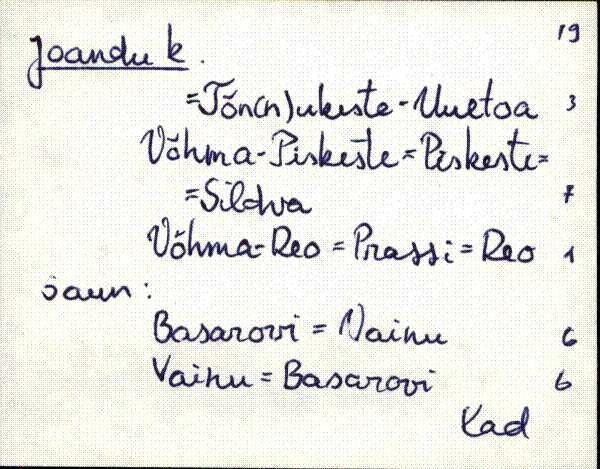 19
Joandu k.
=Tõn(n)ukeste-Uuetoa 3
Võhma-Piskeste=Piskeste=
=Sildva 7
Võhma-Reo = Prassi = Reo 1
saun:
Basarovi = Vainu 6
Vainu = Basarovi 6
Kad